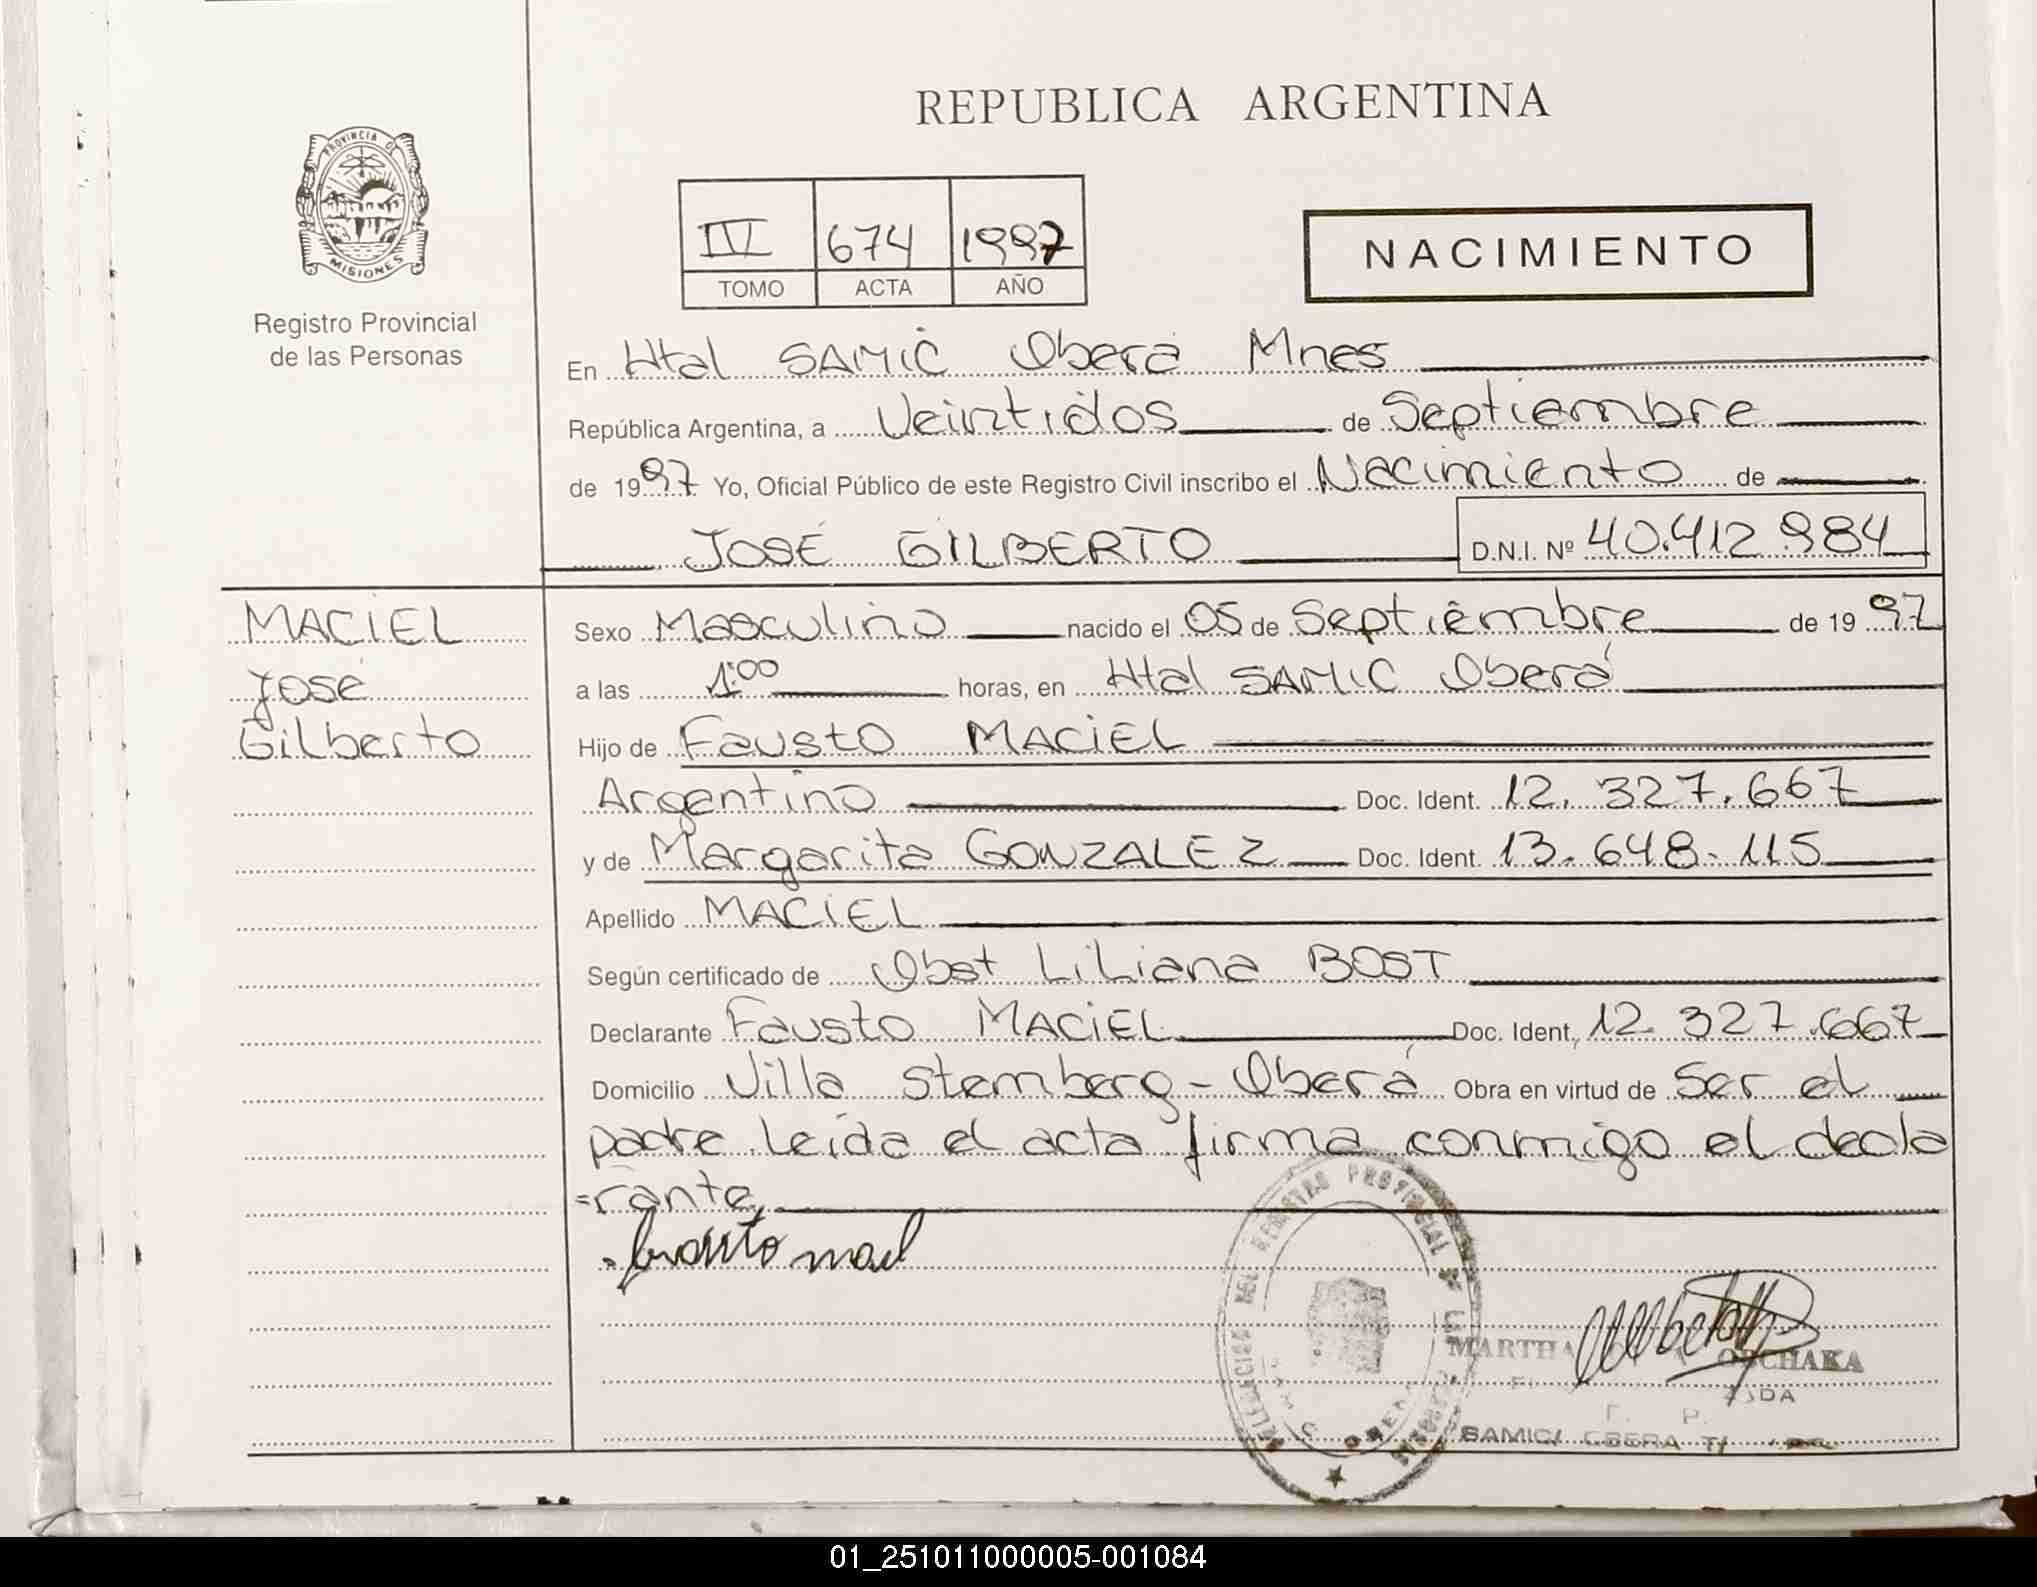 REPUBLICA ARGENTINA
PROVINCIA D MISIONES
Registro Provincial
de las Personas
IV 674 1997
TOMO ACTA AÑO
NACIMIENTO
En Htal SAMIC Oberá Mnes
República Argentina, a Veintidos de Septiembre
de 1997 Yo, Oficial Público de este Registro Civil inscribo el Nacimiento de
JOSÉ GILBERTO D.N.I. Nº 40.412.984
MACIEL
José
Gilberto
Sexo Masculino nacido el 05 de Septiembre de 1997
a las 1:00 horas, en Htal SAMIC Oberá
Hijo de Fausto MACIEL
Argentino Doc. Ident. 12.327.667
y de Margarita GONZALEZ Doc. Ident. 13.648.115
Apellido MACIEL
Según certificado de Obst Liliana BOST
Declarante Fausto MACIEL Doc. Ident. 12.327.667
Domicilio Villa Stemberg - Oberá Obra en virtud de Ser el
padre. Leída el acta firma conmigo el decla
=rante
DELEGACION DEL REGISTRO PROVINCIAL DE LAS PERSONAS
MARTHA
SAMIC/ OBERA
01_251011000005-001084